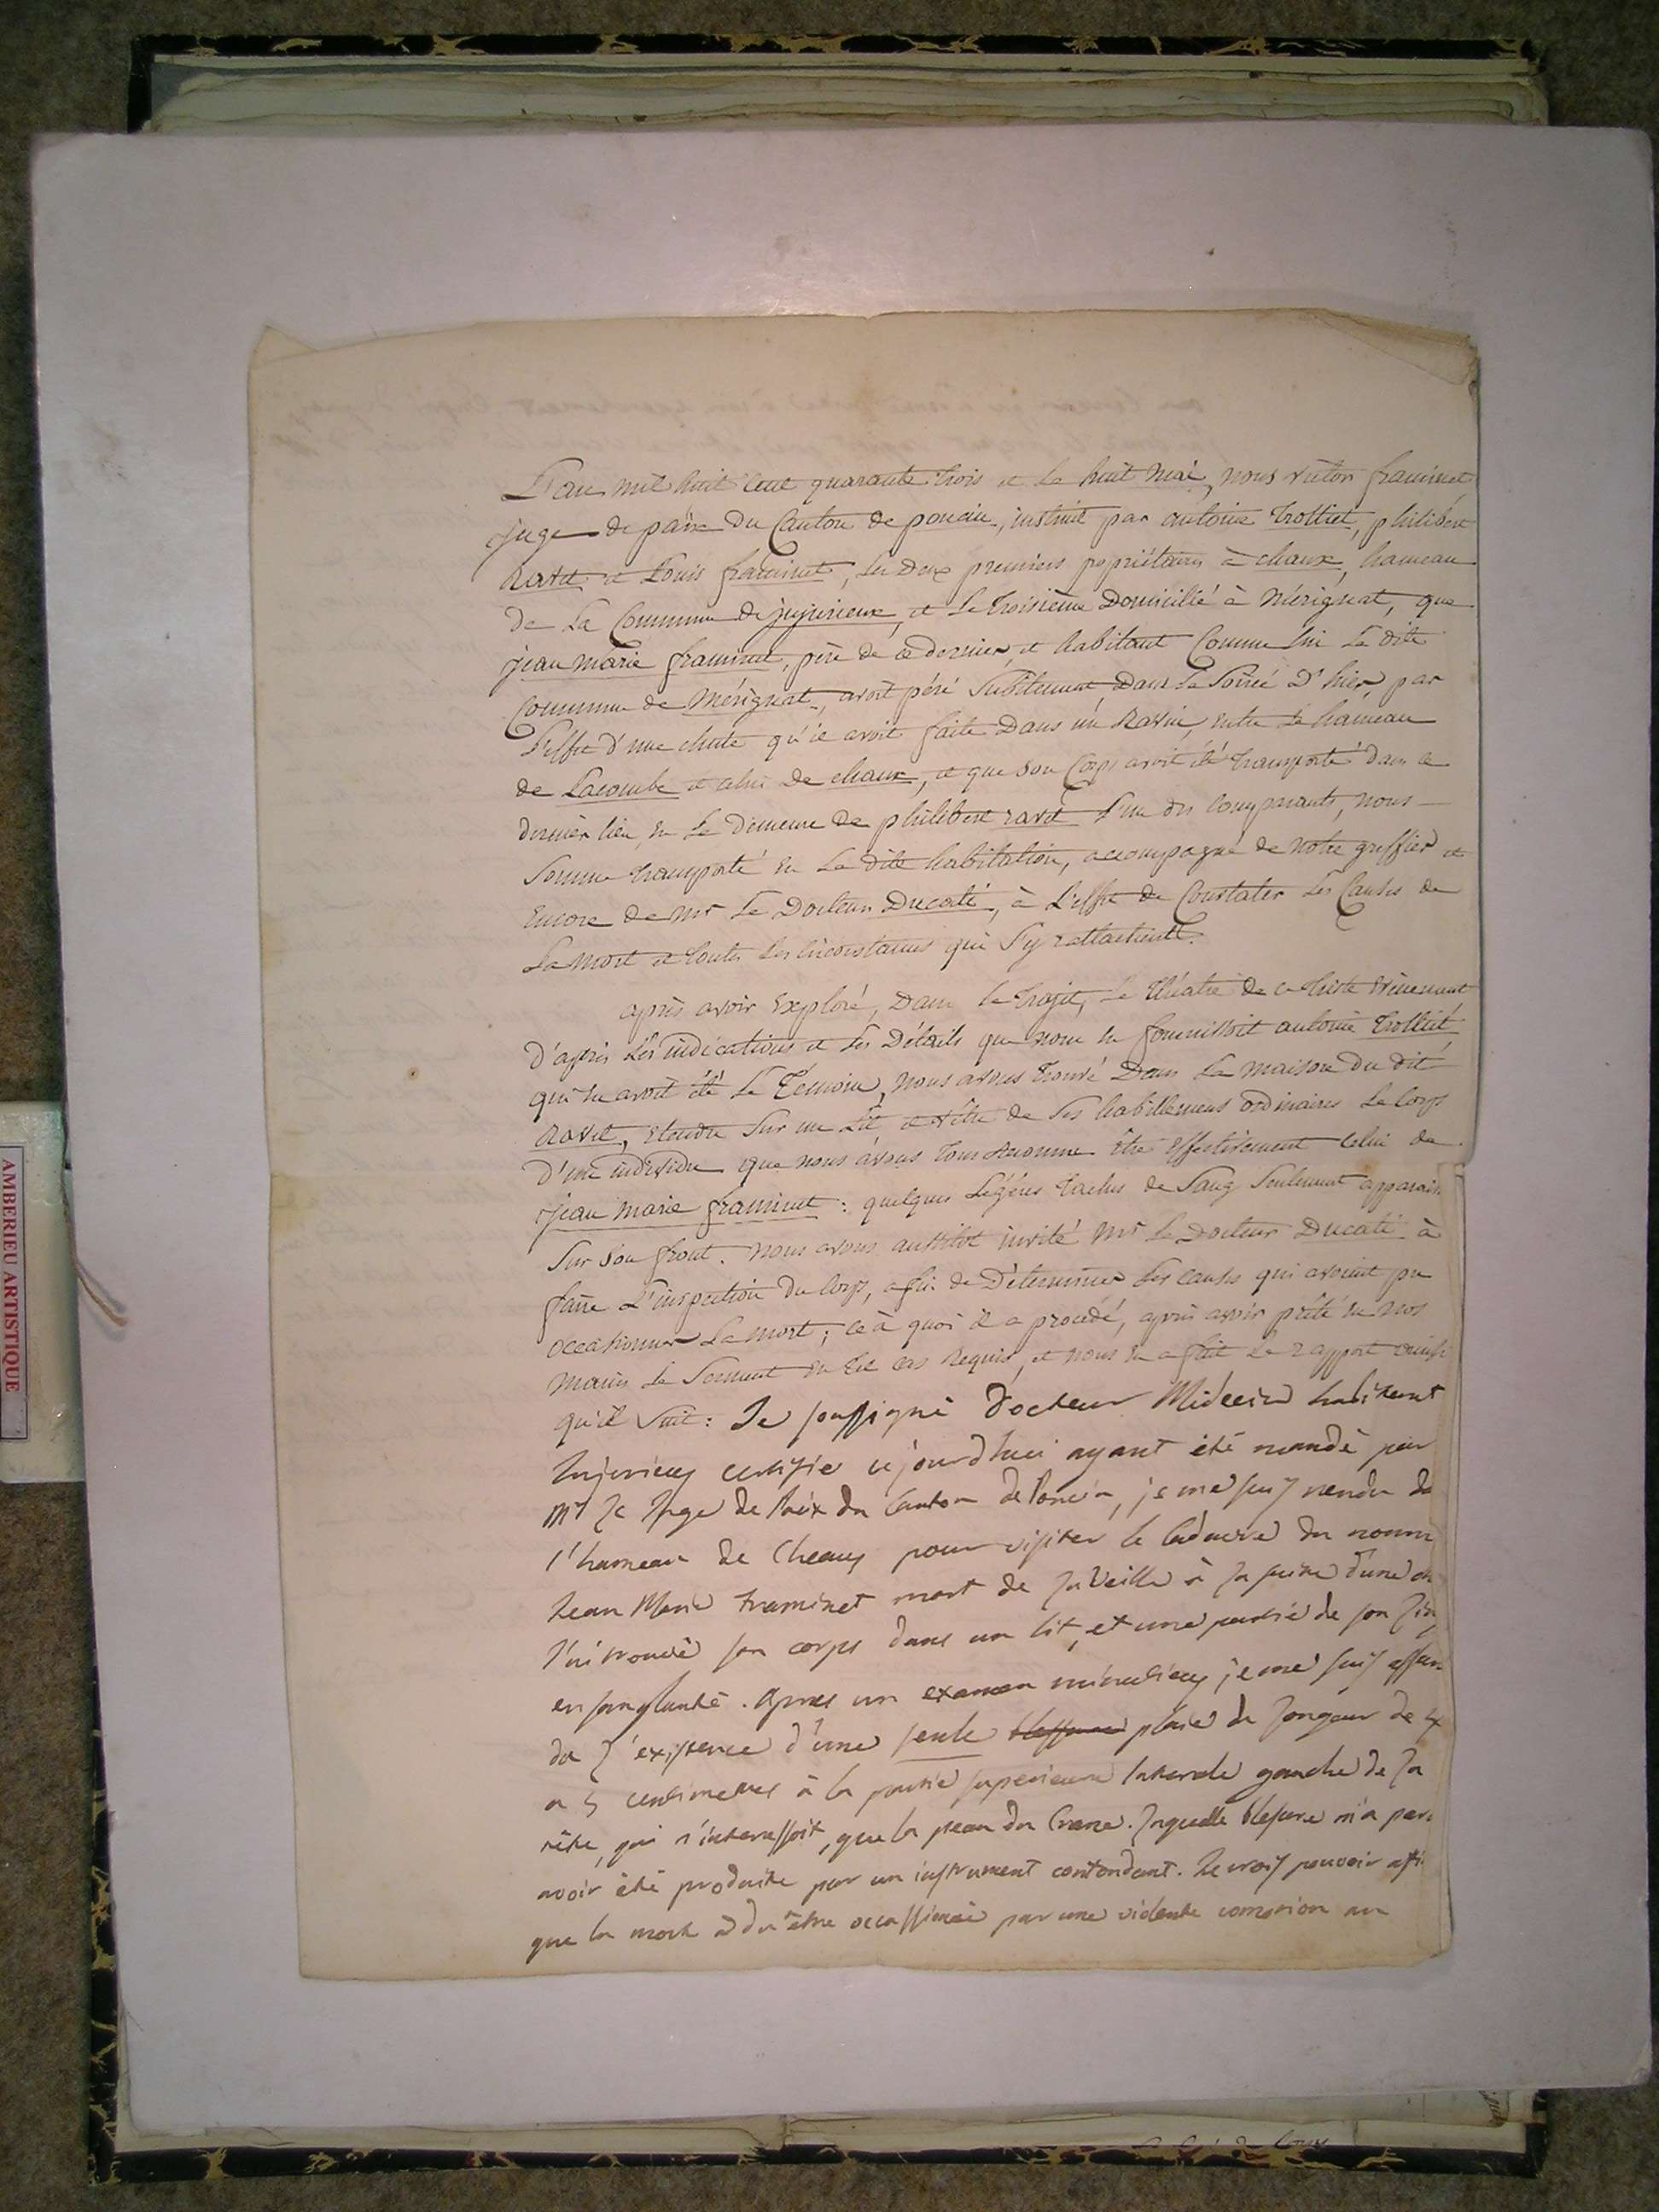 L'an mil huit cent quarante trois et le huit mai, nous victor framinet
juge de paix du Canton de poncin, instruit par antoine trolliet, philibert
ravet et Louis framinet, les deux premiers propriétaires à chaux, hameau
de La Commune de jujurieux, et le troisième Domicilié à Mérignat, que
jean marie framinet, père de ce dernier, et habitant Comme lui La dite
Commune de Mérignat, avoit péri Subitement dans la Soirée d'hier, par
L'effet d'une chute qu'il avoit faite Dans un Ravin, entre le hameau
de Lacombe et celui de chaux, et que son Corps avoit été transporté dans ce
dernier lieu, en La demeure de philibert ravet L'un des Comparants, nous
Somme transporté en La dite habitation, accompagné de notre greffier et
Encore de Mr Le Docteur Ducati, à L'effet de Constater Les Causes de
La mort et toutes les circonstances qui S'y rattachent.
après avoir Exploré, Dans le trajet, Le théatre de ce triste évènement
D'après Les indications et Les Détails que nous en fournissoit antoine trolliet
qui en avoit été Le Témoin, nous avons trouvé Dans La maison du dit
Ravet, étendu Sur un Lit et vêtu de Ses habillemens ordinaires Le Corps
D'un individu que nous avons tous reconnu être effectivement Celui de
jean marie framinet : quelques Légères taches de Sang Seulement apparais
Sur Son front. nous avons aussitot invité Mr Le Docteur Ducati à
faire L'inspection du Corps, afin de Déterminer Les causes qui avoient pu
occasionner La mort ; ce à quoi il a procédé, après avoir prêté en nos
mains Le Serment En tel cas Requis, et nous en a fait Le rapport ainsi
qu'il Suit : Je soussigné Docteur Médecin habitant
Jujurieux certifie cejourdhui ayant été mandé par
Mr le Juge de Paix du Canton de Poncin, je me suis rendu da
l'hameau de Cheaux pour visiter le Cadavre du nomm
Jean Marie Framinet mort de la Veille à la suite d'une ch
J'ai trouvé son corps dans un lit, et une partie de son lin
ensanglanté. Apres un examen minutieux, je me suis assur
de l'existence d'une seule blessure plaie de longeur de 4
a 5 centimetres à la partie superieure laterale gauche de la
tête, qui n'interessoit, que la peau du Crane. laquelle blesure m'a par
avoir été produite par un instrument contondant. Je crois pouvoir affi
que la mort a du être occassionée par une violente comotion au
AMBERIEU ARTISTIQUE